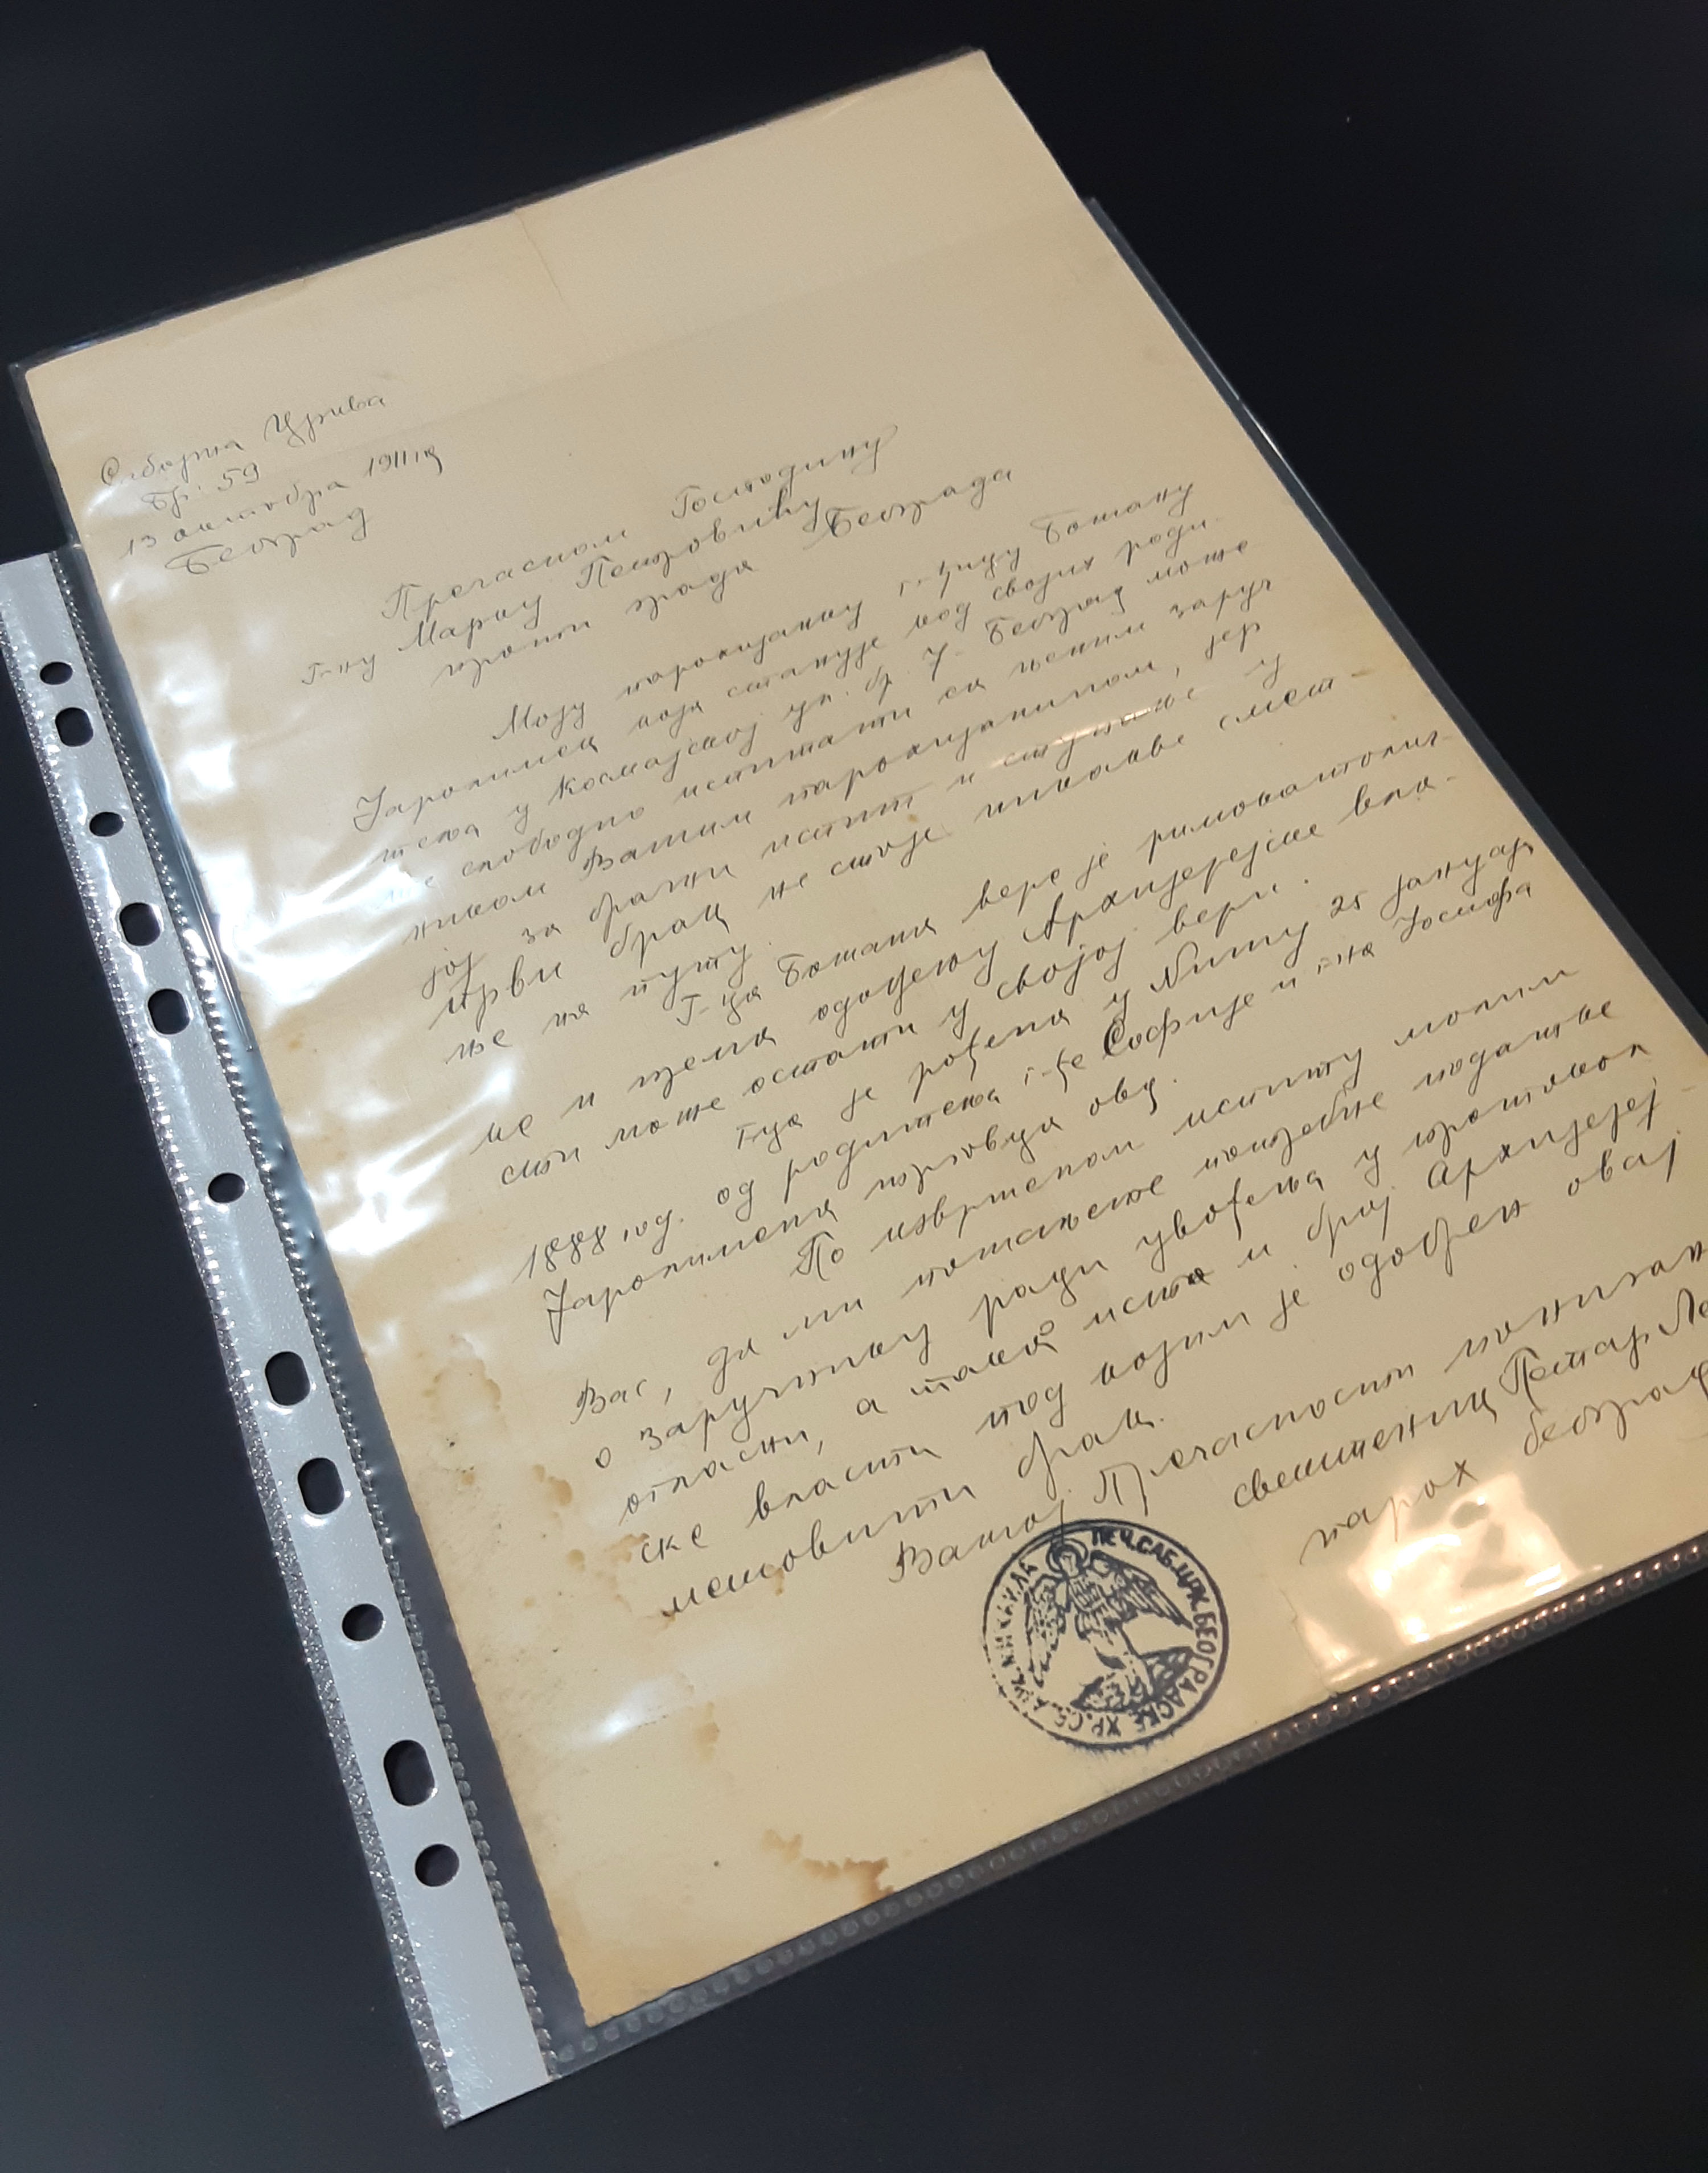 Саборна Црква
Бр: 59
13 октобра 1911 г
Београд
Пречасном Господину
Г-ну Марку Петровићу
проти града Београда
Моју парохијанку г-ђицу Божану
Јаролимек која станује код својих роди-
теља у Космајској ул. бр. 7 - Београд може
те слободно испитати са њеним заруч
ником Вашим парохијанином, јер
јој за брачни испит и ступање у
први брак не стоје никакве смет-
ње на путу.
Г-ца Божана вере је римокатолич-
ке и према одобрењу Архијерејске вла-
сти може остати у својој вери.
Г-ца је рођена у Нишу 25 јануара
1888 год. од родитеља г-ђе Софије и г-на Јосифа
Јаролимека трговца овд.
По извршеном испиту молим
Вас, да ми пошаљете потребне податке
о заручнику ради увођења у протокол
огласни, а такође исто и број Архијереј-
ске власти под којим је одобрен овај
мешовити брак.
Вашој Пречасности понизан
свештеник Петар
парох београд
ПЕЧ.САБ.ЦРК.БЕОГРАДСКЕ ХР.СВ.АРХ.МИХАИЛА